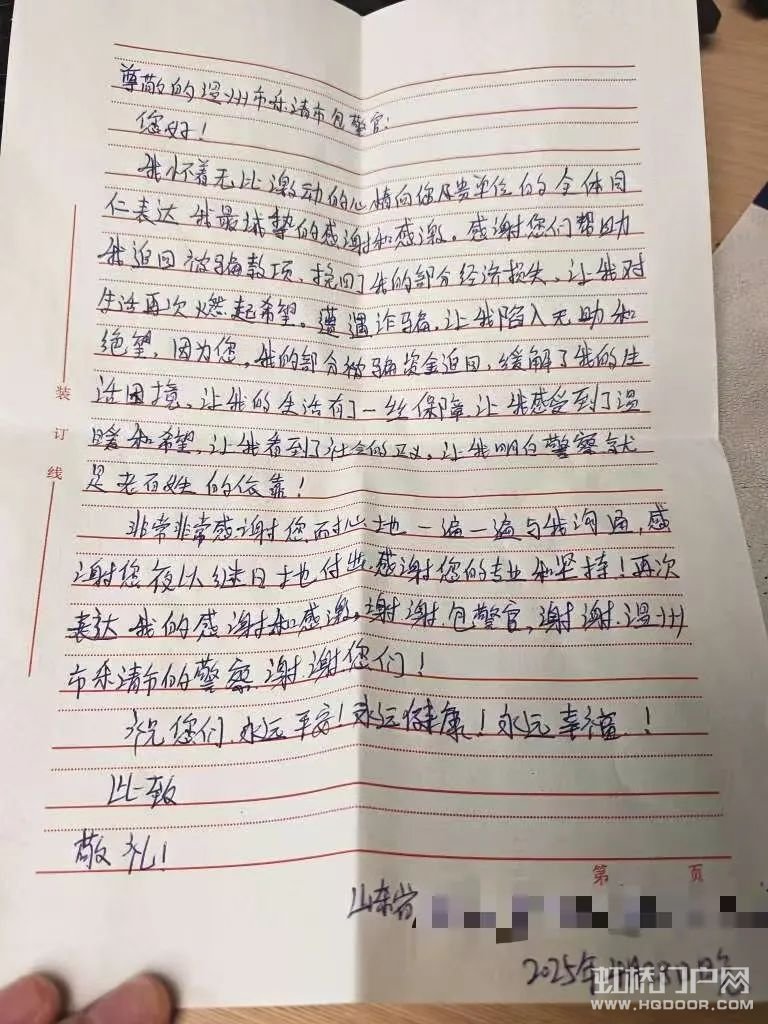 尊敬的温州市乐清市包警官:
您好!
我怀着无比激动的心情向您及贵单位的全体同
仁表达我最球挚的感谢和感激。感谢您们帮助
我追回被骗款项、挽回了我的部分经济损失、让我对
生活再次燃起希望。遭遇诈骗、让我陷入无助和
绝望,因为您,我的部分被骗资金追回,缓解了我的生
活困境、让我的生活有了一丝保障、让我感受到了温
暖和希望,让我看到了社会的正义、让我明白警察就
是老百姓的依靠!
非常非常感谢您耐心地一遍一遍与我沟通,感
谢您夜以继日地付出、感谢您的专业和坚持!再次
表达我的感谢和感激。谢谢包警官,谢谢温州
市乐清市的警察、谢谢您们!
祝您们永远平安!永远健康!永远幸福!
此致
敬礼!
装订线
第 页
山东省
2025年
虹桥门户网
WWW.HQDOOR.COM